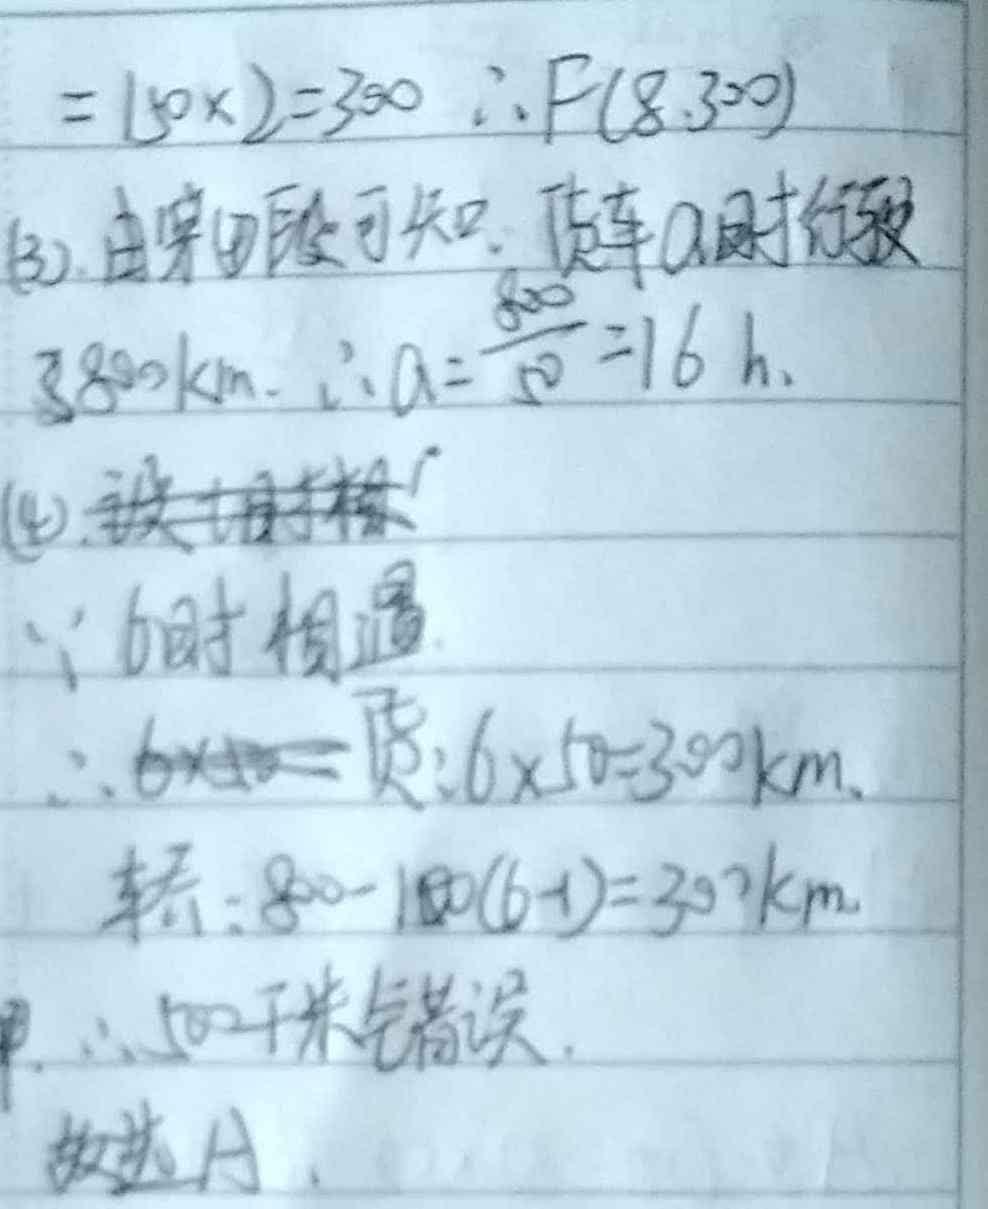 =150×2=300 ∴F(8.300)
(3).由第四段可知.货车a时行驶
800km.∴a=800/50=16 h.
(4).
∵ 6时相遇.
∴ 货:6×50=300km.
轿:800-100(6-1)=300km.
∴500千米错误.
故选A.